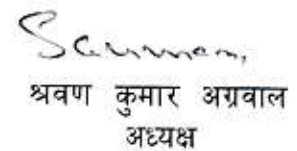 श्रवण कुमार अग्रवाल
अध्यक्ष